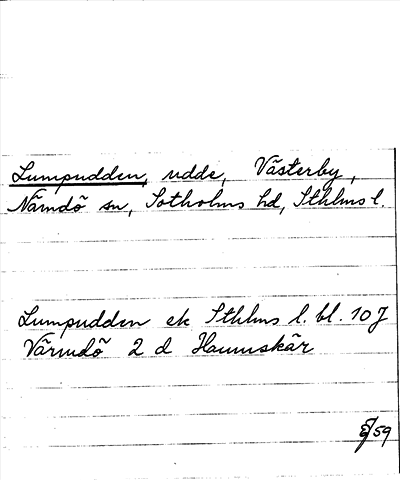 Lumpudden, udde, Västerby,
Nämdö sn, Sotholms hd, Sthlms l.
Lumpudden ek Sthlms l. bl. 10 J
Värmdö 2 d Hamnskär
59